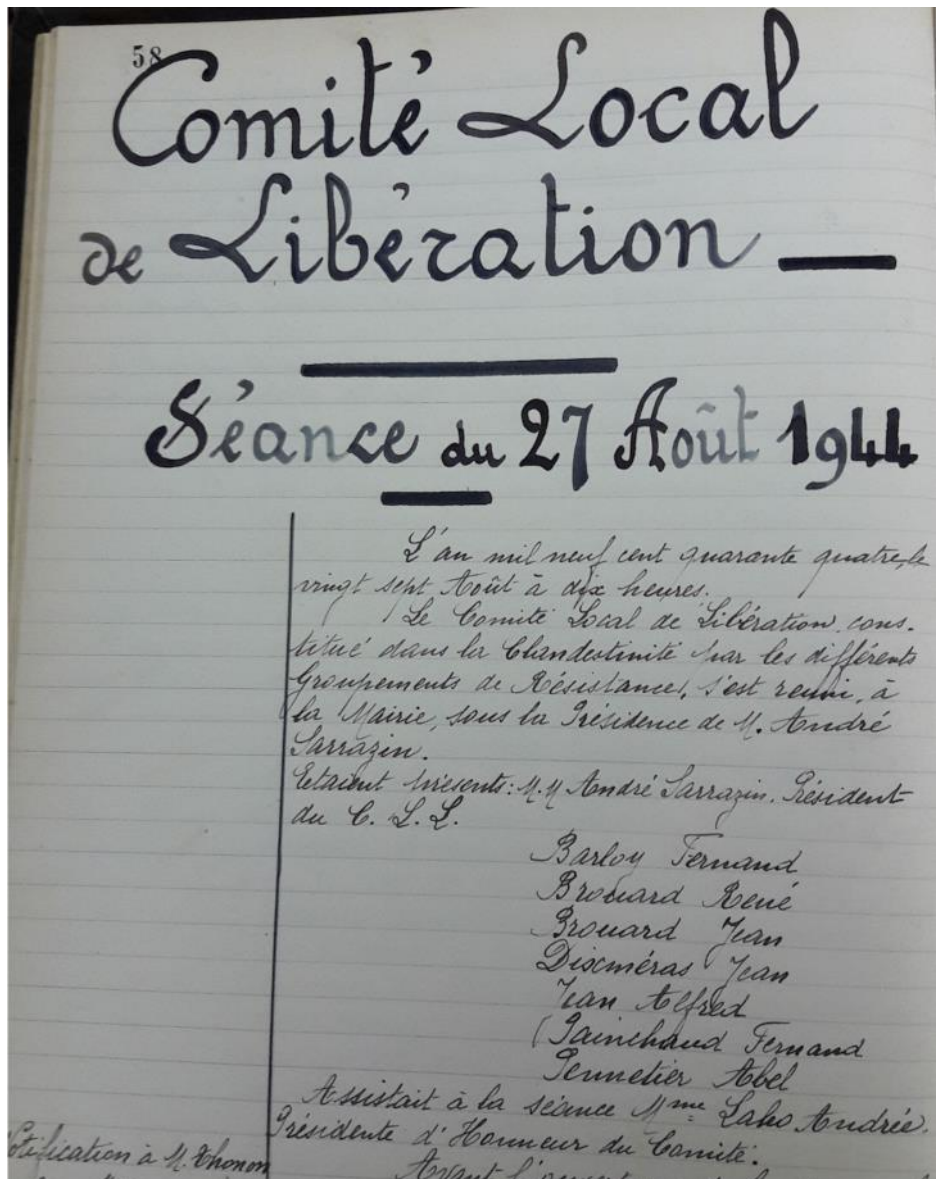 58
Comité Local
de Libération —
Séance du 27 Août 1944
L'an mil neuf cent quarante quatre, le
vingt sept Août à dix heures.
Le Comité Local de Libération, cons-
titué dans la Clandestinité par les différents
Groupements de Résistance, s'est réuni, à
la Mairie, sous la Présidence de M. André
Sarrazin.
Etaient présents: M.M André Sarrazin. Président
du C. L. L.
Barloy Fernand
Brouard René
Brouard Jean
Dixméras Jean
Jean Alfred
Painchaud Fernand
Pennetier Abel
Assistait à la séance Mme Labo Andrée.
Présidente d'Honneur du Comité.
Notification à M. Thonon
Avant l'